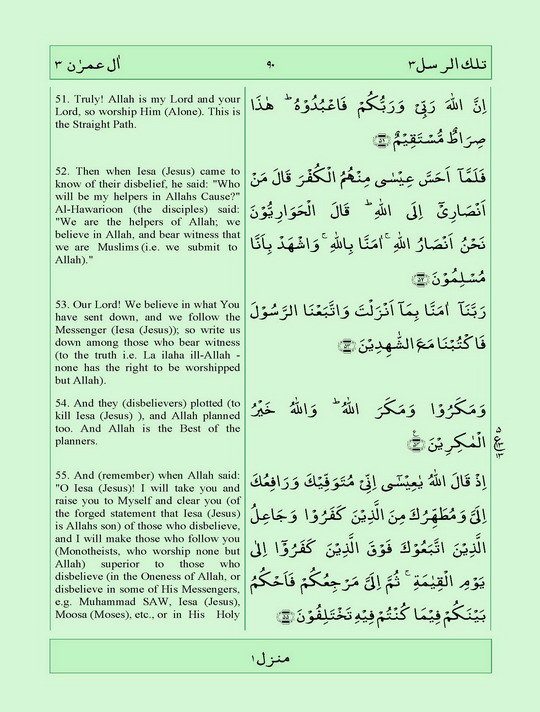 اٰل عمرٰن ٣
٩٠
تلك الرسل ٣
51. Truly! Allah is my Lord and your
Lord, so worship Him (Alone). This is
the Straight Path.
اِنَّ اللّٰهَ رَبِّىْ وَرَبُّكُمْ فَاعْبُدُوْهُ ؕ هٰذَا
صِرَاطٌ مُّسْتَقِيْمٌ ﴿۵۱﴾
52. Then when Iesa (Jesus) came to
know of their disbelief, he said: "Who
will be my helpers in Allahs Cause?"
Al-Hawarioon (the disciples) said:
"We are the helpers of Allah; we
believe in Allah, and bear witness that
we are Muslims (i.e. we submit to
Allah)."
فَلَمَّاۤ اَحَسَّ عِيْسٰى مِنْهُمُ الْكُفْرَ قَالَ مَنْ
اَنْصَارِىْۤ اِلَى اللّٰهِ ؕ قَالَ الْحَوَارِيُّوْنَ
نَحْنُ اَنْصَارُ اللّٰهِ ۚ اٰمَنَّا بِاللّٰهِ ۚ وَاشْهَدْ بِاَنَّا
مُسْلِمُوْنَ ﴿۵۲﴾
53. Our Lord! We believe in what You
have sent down, and we follow the
Messenger (Iesa (Jesus)); so write us
down among those who bear witness
(to the truth i.e. La ilaha ill-Allah -
none has the right to be worshipped
but Allah).
رَبَّنَاۤ اٰمَنَّا بِمَاۤ اَنْزَلْتَ وَاتَّبَعْنَا الرَّسُوْلَ
فَاكْتُبْنَا مَعَ الشّٰهِدِيْنَ ﴿۵۳﴾
54. And they (disbelievers) plotted (to
kill Iesa (Jesus) ), and Allah planned
too. And Allah is the Best of the
planners.
وَمَكَرُوْا وَمَكَرَ اللّٰهُ ؕ وَاللّٰهُ خَيْرُ
الْمٰكِرِيْنَ ﴿۵۴﴾
55. And (remember) when Allah said:
"O Iesa (Jesus)! I will take you and
raise you to Myself and clear you (of
the forged statement that Iesa (Jesus)
is Allahs son) of those who disbelieve,
and I will make those who follow you
(Monotheists, who worship none but
Allah) superior to those who
disbelieve (in the Oneness of Allah, or
disbelieve in some of His Messengers,
e.g. Muhammad SAW, Iesa (Jesus),
Moosa (Moses), etc., or in His Holy
اِذْ قَالَ اللّٰهُ يٰعِيْسٰۤى اِنِّىْ مُتَوَفِّيْكَ وَرَافِعُكَ
اِلَىَّ وَمُطَهِّرُكَ مِنَ الَّذِيْنَ كَفَرُوْا وَجَاعِلُ
الَّذِيْنَ اتَّبَعُوْكَ فَوْقَ الَّذِيْنَ كَفَرُوْۤا اِلٰى
يَوْمِ الْقِيٰمَةِ ۚ ثُمَّ اِلَىَّ مَرْجِعُكُمْ فَاَحْكُمُ
بَيْنَكُمْ فِيْمَا كُنْتُمْ فِيْهِ تَخْتَلِفُوْنَ ﴿۵۵﴾
منزل ١